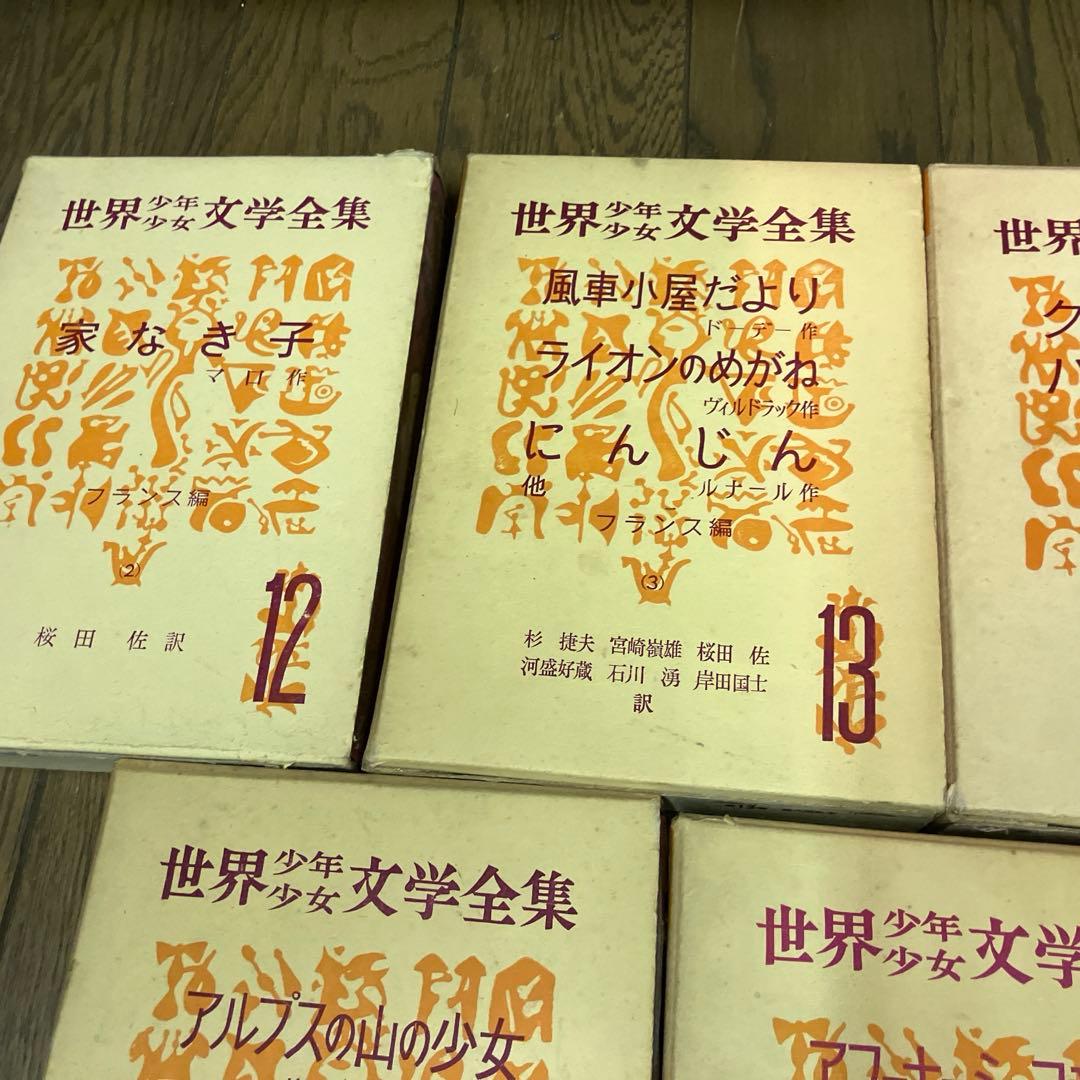 世界少年少女文学全集
家なき子
マロ作
フランス編
(2)
12
桜田 佐訳
世界少年少女文学全集
風車小屋だより
ドーデー作
ライオンのめがね
ヴィルドラック作
にんじん
他 ルナール作
フランス編
(3)
13
杉 捷夫 宮崎嶺雄 桜田 佐
河盛好蔵 石川 湧 岸田国士
訳
世界
ク
世界少年少女文学全集
アルプスの山の少女
世界少年少女文学